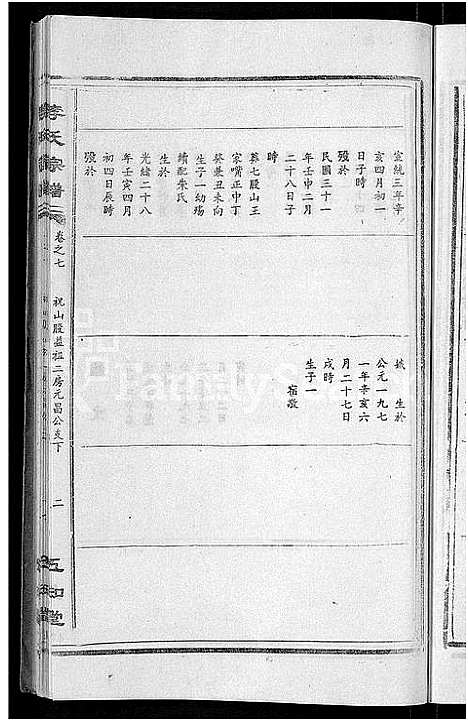 宣統三年辛
亥四月初一
日子時
歿於
民國三十一
年壬申二月
二十八日子
時
葬七股山王
家嘴正中丁
癸兼丑未向
生子一幼殤
續配朱氏
生於
光緒二十八
年壬寅四月
初四日辰時
歿於
生於
公元一九七
一年辛亥六
月二十七日
戌時
生子一
宗譜
卷之七
祝山股益祖二房元昌公支下
二
五和堂